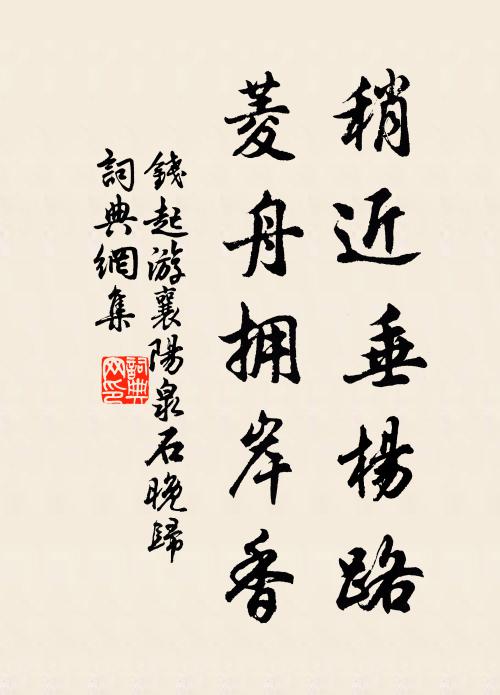 稍近垂楊路
菱舟拥岸香
錢起游襄陽泉石晚歸
詞典網集
詞典网印